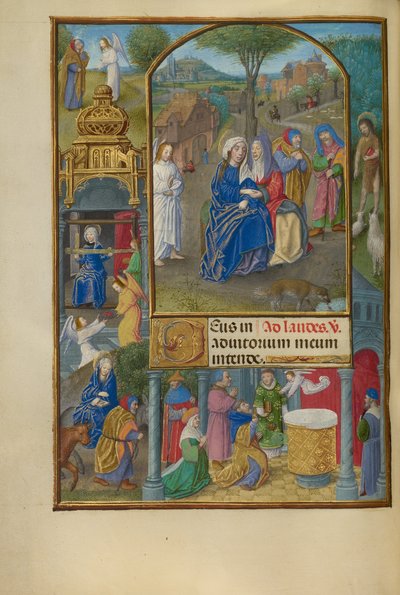 DEus in Ad laudes. ℣.
adiutorium meum
intende.